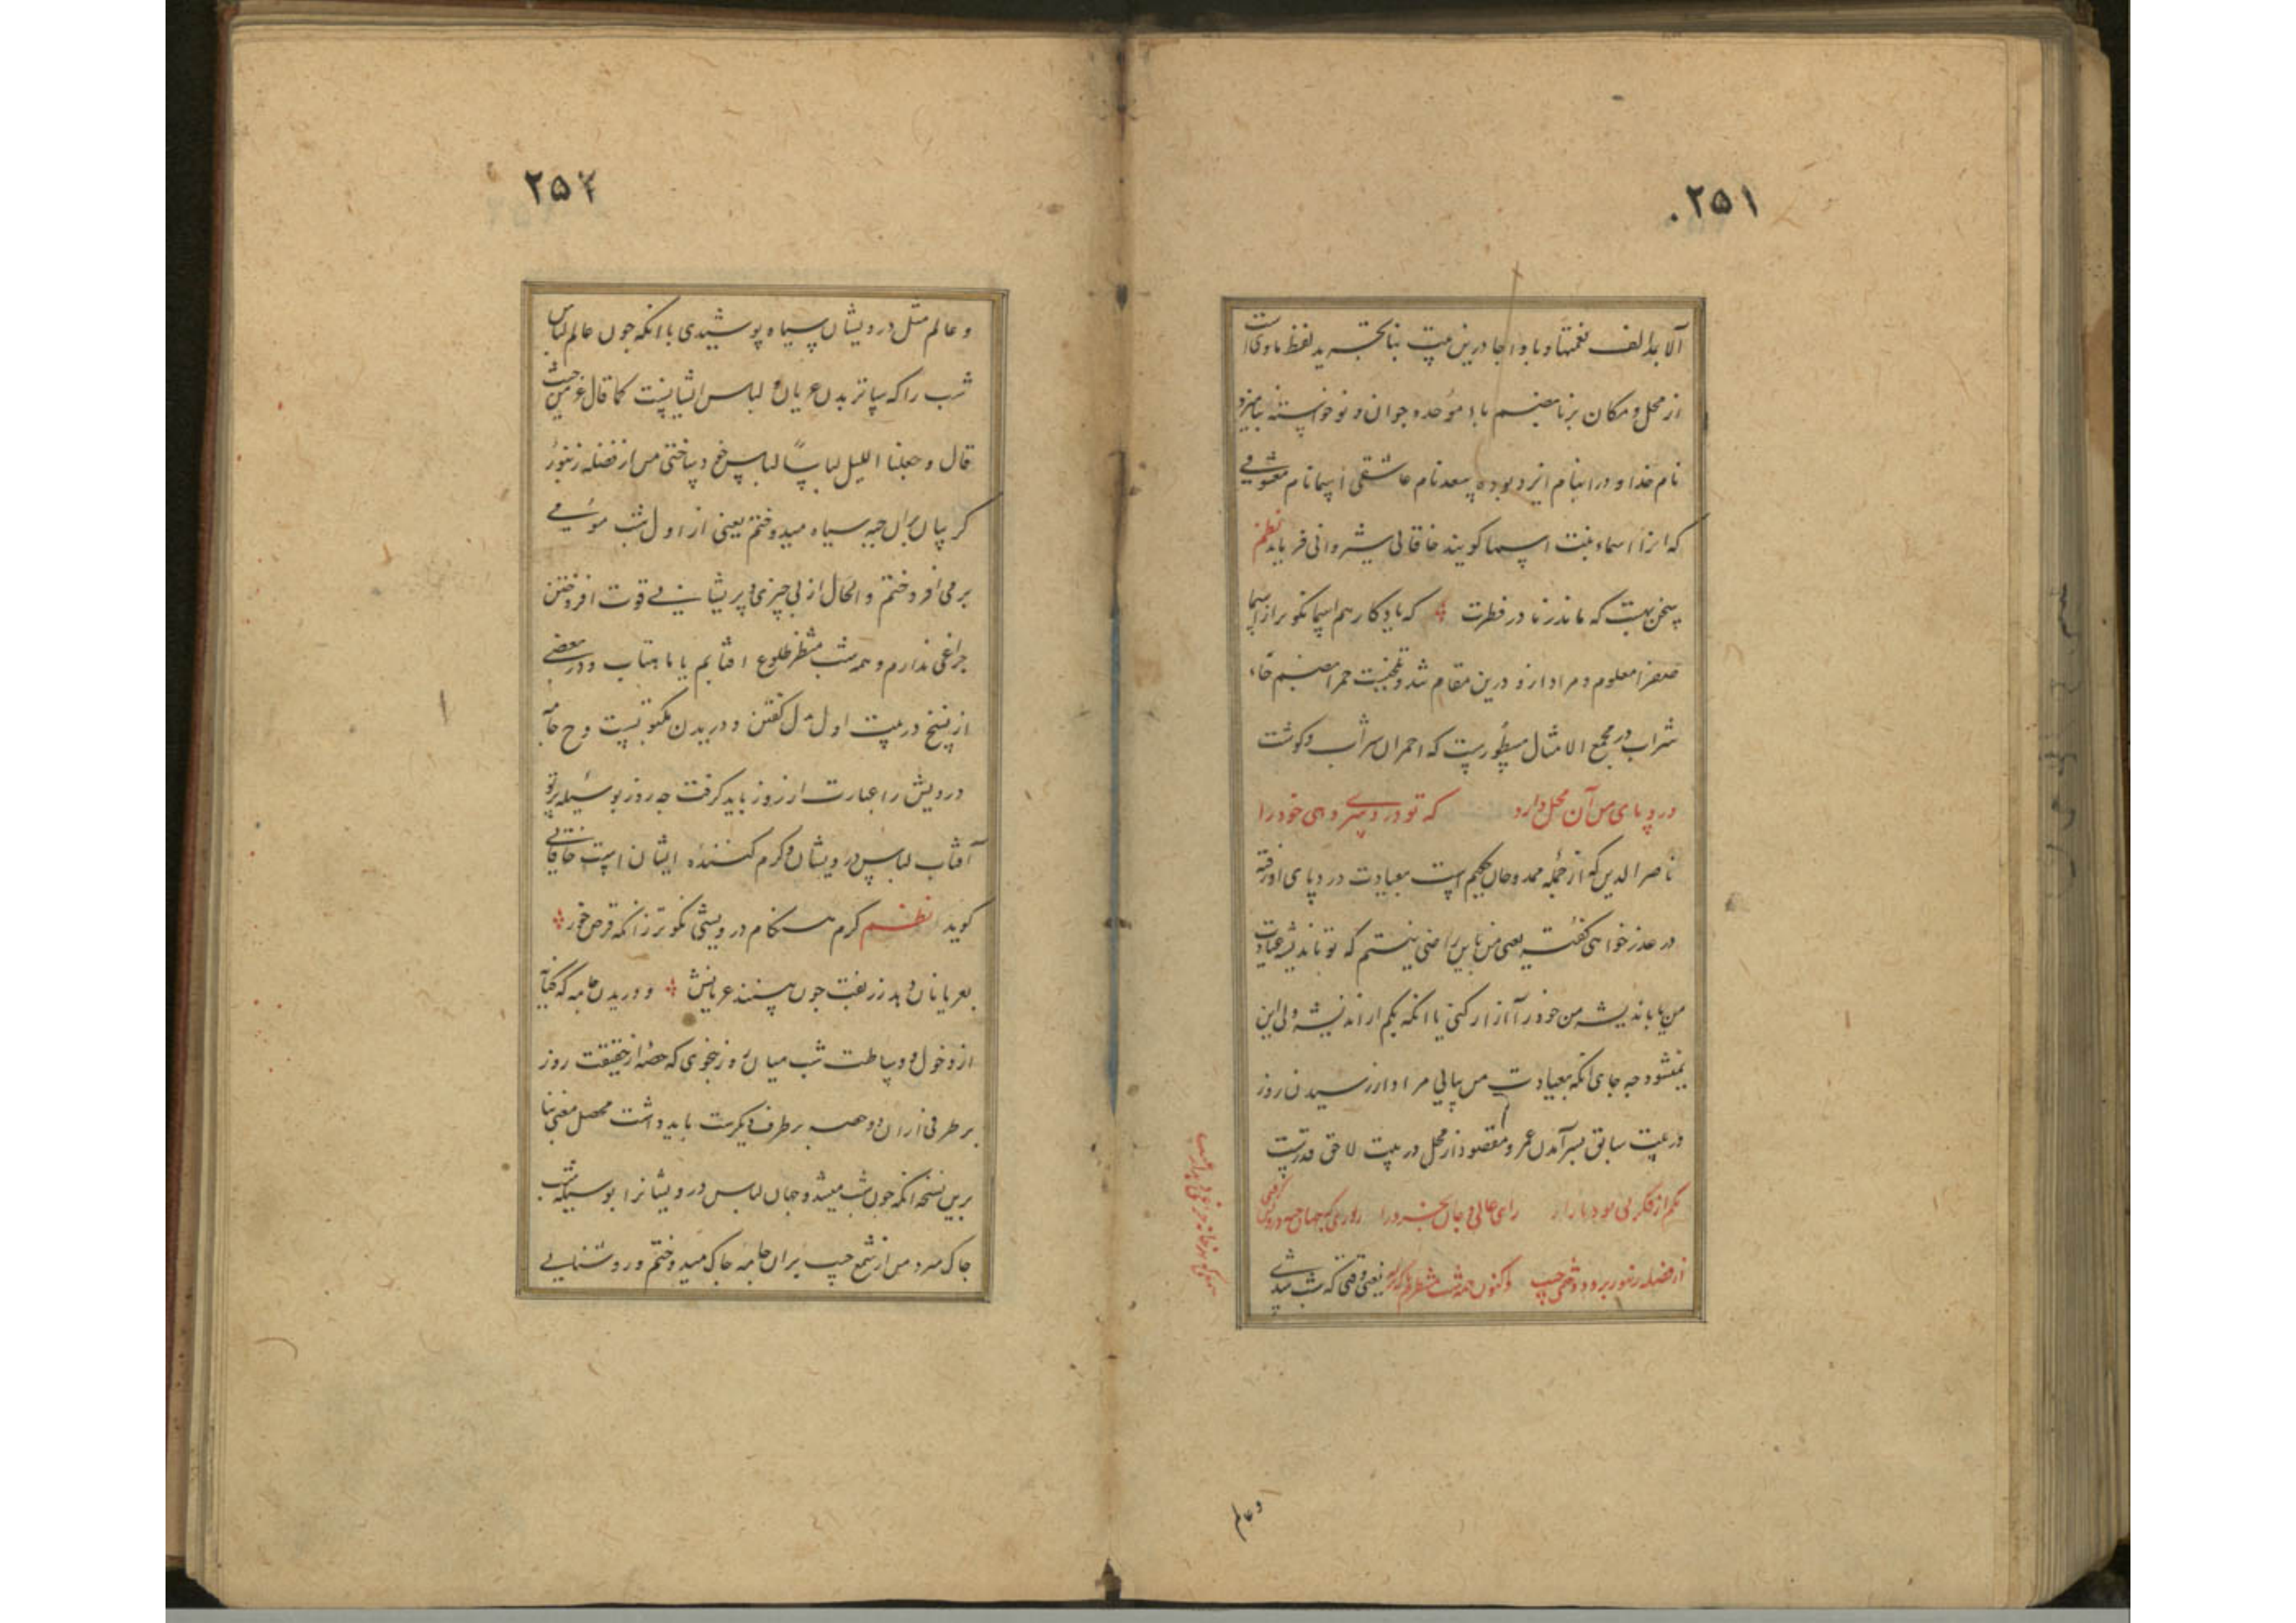 ۲۵۱
الا بدالف نعمتها و با و اجا درین بیت بنا بتجرید لفظ ماوی است
از محل و مکان برنا بضم با موحده جوان و نو خواسته
نام خدا و در اینام ایزد بوده سعد نام عاشقی اسما نام معشوقی
که انرا اسماء بنت اسما کویند خاقانی شیروانی فرماید نظم
سخن بهست که ماند ز ما در فطرت که یادکار هم اسما نکو تر از اسما
صفرا معلوم و مراد ازو درین مقام شد و حمرا بضم حاء
شراب در مجمع الامثال مسطورست که احمران شراب و کوشت
درد پای من آن محل دارد که تو درد سر دهی خود را
ناصر الدین که از جمله ممدوحان حکیم است بعیادت درد پای او رفته
در عذر خواهی کفته یعنی من باین راضی نیستم که تو باندیشه عیادت
من یا باندیشه من خود را آزار کنی با انکه یکم از اندیشه ولی این
نمیشود چه جای انکه بعیادت من بیائی مراد از رسیدن روز
در بیت سابق بسر آمدن عمر و مقصود از محل در بیت لاحق قدرست
یکم از فکر رای عالی و جان بخرد را
از فضله زنبور برو دوختمی جیب واکنون همه شب منتظرم یعنی وقتی که شب میشدی
و عالم
۲۵۲
و عالم مثل درویشان سیاه پوشیدی با انکه چون عالم لباس
شب را که ساتر بدن عریان و لباس ایشانست کما قال عز من حیث
قال و جعلنا اللیل لباسا لباس خود ساختی من از فضله زنبور
کریبان بران جبه سیاه میدوختم یعنی از اول شب مومی
برمی افروختم والحال از بی چیزی و پریشانی قوت افروختن
چراغی ندارم و همه شب منتظر طلوع افتابم یا ماهتاب و در بعضی
از نسخ در بیت اول بدل کفتن و دریدن مکتوبست و ح جامه
درویش را عبارت از روز باید کرفت چه روز بوسیله پرتو
آفتاب لباس درویشان و کرم کننده ایشان است خاقانی
کوید نظم کرم هنکام درویشی نکو تر زانکه قرص خور
بعریانان دهد زربفت چون بینند عریانش و دریدن جامه که کنایة
از دخول و وساطت شب میان روز بنحوی که حصه از حقیقت روز
بر طرفی از ان و حصه بر طرف دیکرست باید داشت محصل معنی بنا
برین نسخه انکه چون شب میشد و جهان لباس درویشانرا بوسیله شب
چاک میزد من از شمع جیب بران جامه چاک میدوختم و روشنایی